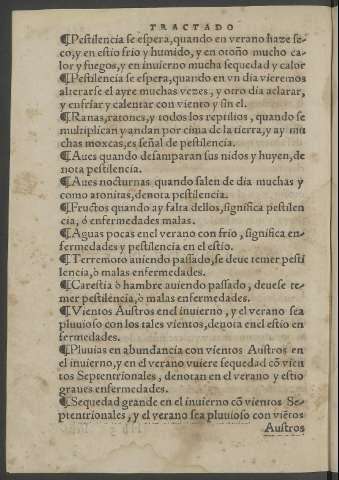 TRACTADO
¶Pestilencia se espera, quando en verano haze se-
co, y en estio frio y humido, y en otoño mucho ca-
lor y fuegos, y en inuierno mucha sequedad y calor
¶Pestilencia se espera, quando en vn dia vieremos
alterarse el ayre muchas vezes, y otro dia aclarar,
y enfriar y calentar con viento y sin el.
¶Ranas, ratones, y todos los reptilios, quando se
multiplican y andan por cima de la tierra, y ay mu
chas moxcas, es señal de pestilencia.
¶Aues quando desamparan sus nidos y huyen, de
nota pestilencia.
¶Aues nocturnas quando salen de dia muchas y
como atonitas, denota pestilencia.
¶Fructos quando ay falta dellos, significa pestilen
cia, ó enfermedades malas.
¶Aguas pocas enel verano con frio, significa en-
fermedades y pestilencia en el estio.
¶Terremoto auiendo passado, se deue temer pesti
lencia, ò malas enfermedades.
¶Carestia ò hambre auiendo passado, deuese te-
mer pestilencia, ò malas enfermedades.
¶Vientos Austros enel inuierno, y el verano sea
pluuioso con los tales vientos, denota enel estio en
fermedades.
¶Pluuias en abundancia con vientos Austros en
el inuierno, y en el verano vuiere sequedad cō vien
tos Septentrionales, denotan en el verano y estio
graues enfermedades.
¶Sequedad grande en el inuierno cō vientos Se-
ptentrionales, y el verano sea pluuioso con viētos
Austros